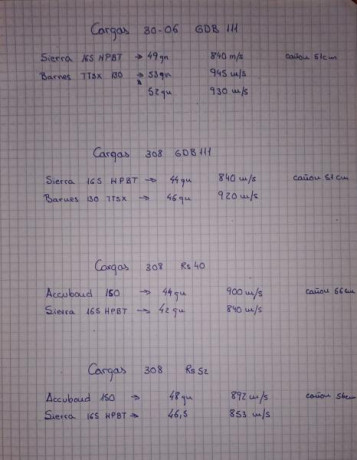 Cargas 30-06 GDB 111
Sierra 165 HPBT → 49gn 840 m/s cañon 51cm
Barnes TTSX 130 → 53gn 945 m/s
52 gn 930 m/s
Cargas 308 GDB 111
Sierra 165 HPBT → 44gn 840 m/s cañon 51 cm
Barnes 130 TTSX → 46gn 920 m/s
Cargas 308 Rs 40
Accubond 150 → 44gn 900 m/s cañon 56cm
Sierra 165 HPBT → 42 gn 840 m/s
Cargas 308 Rs 52
Accubond 150 → 48 gn 892 m/s cañon 56cm
Sierra 165 HPBT → 46,5 853 m/s